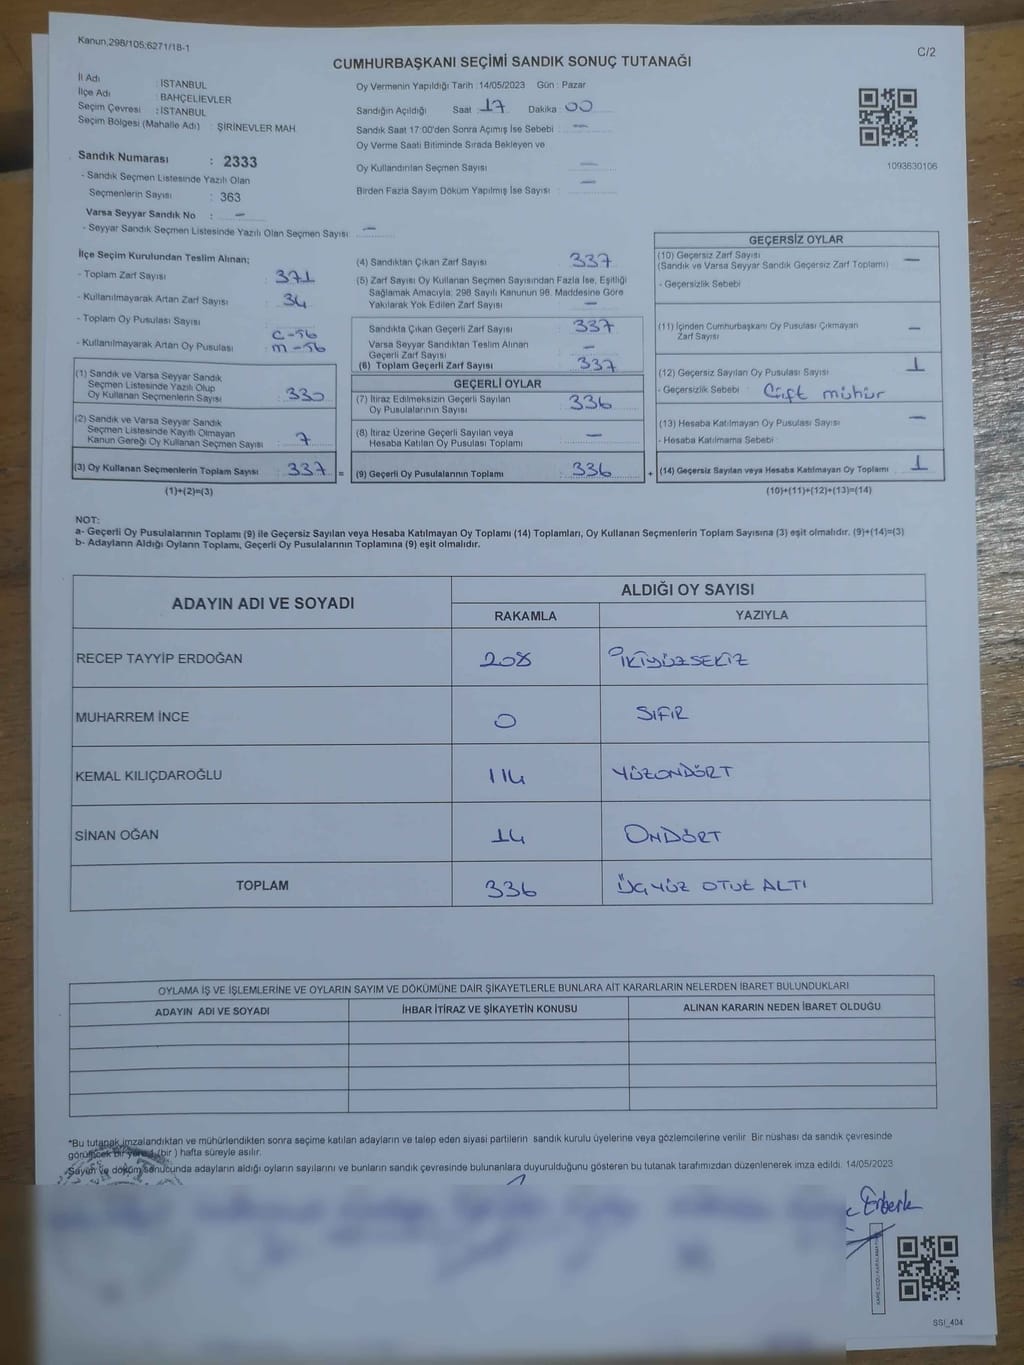 Kanun,298/105;6271/18-1
C/2
CUMHURBAŞKANI SEÇİMİ SANDIK SONUÇ TUTANAĞI
İl Adı : İSTANBUL
İlçe Adı : BAHÇELİEVLER
Seçim Çevresi : İSTANBUL
Seçim Bölgesi (Mahalle Adı) : ŞİRİNEVLER MAH.
Sandık Numarası : 2333
- Sandık Seçmen Listesinde Yazılı Olan
Seçmenlerin Sayısı : 363
Varsa Seyyar Sandık No : -
- Seyyar Sandık Seçmen Listesinde Yazılı Olan Seçmen Sayısı : -
Oy Vermenin Yapıldığı Tarih : 14/05/2023 Gün : Pazar
Sandığın Açıldığı Saat : 17 Dakika : 00
Sandık Saat 17:00'den Sonra Açımış İse Sebebi : -
Oy Verme Saati Bitiminde Sırada Bekleyen ve
Oy Kullandırılan Seçmen Sayısı : -
Birden Fazla Sayım Döküm Yapılmış İse Sayısı : -
1093630106
İlçe Seçim Kurulundan Teslim Alınan;
- Toplam Zarf Sayısı : 371
- Kullanılmayarak Artan Zarf Sayısı : 34
- Toplam Oy Pusulası Sayısı :
C-56
- Kullanılmayarak Artan Oy Pusulası : M-56
(1) Sandık ve Varsa Seyyar Sandık
Seçmen Listesinde Yazılı Olup
Oy Kullanan Seçmenlerin Sayısı : 330
(2) Sandık ve Varsa Seyyar Sandık
Seçmen Listesinde Kayıtlı Olmayan
Kanun Gereği Oy Kullanan Seçmen Sayısı : 7
(3) Oy Kullanan Seçmenlerin Toplam Sayısı : 337 =
(1)+(2)=(3)
(4) Sandıktan Çıkan Zarf Sayısı : 337
(5) Zarf Sayısı Oy Kullanan Seçmen Sayısından Fazla İse, Eşitliği
Sağlamak Amacıyla; 298 Sayılı Kanunun 98. Maddesine Göre
Yakılarak Yok Edilen Zarf Sayısı : -
Sandıkta Çıkan Geçerli Zarf Sayısı : 337
Varsa Seyyar Sandıktan Teslim Alınan
Geçerli Zarf Sayısı : -
(6) Toplam Geçerli Zarf Sayısı : 337
GEÇERLİ OYLAR
(7) İtiraz Edilmeksizin Geçerli Sayılan
Oy Pusulalarının Sayısı : 336
(8) İtiraz Üzerine Geçerli Sayılan veya
Hesaba Katılan Oy Pusulası Toplamı : -
(9) Geçerli Oy Pusulalarının Toplamı : 336 +
GEÇERSİZ OYLAR
(10) Geçersiz Zarf Sayısı : -
(Sandık ve Varsa Seyyar Sandık Geçersiz Zarf Toplamı)
- Geçersizlik Sebebi
(11) İçinden Cumhurbaşkanı Oy Pusulası Çıkmayan
Zarf Sayısı : -
(12) Geçersiz Sayılan Oy Pusulası Sayısı : 1
- Geçersizlik Sebebi : Çift mühür
(13) Hesaba Katılmayan Oy Pusulası Sayısı : -
- Hesaba Katılmama Sebebi :
(14) Geçersiz Sayılan veya Hesaba Katılmayan Oy Toplamı : 1
(10)+(11)+(12)+(13)=(14)
NOT:
a- Geçerli Oy Pusulalarının Toplamı (9) ile Geçersiz Sayılan veya Hesaba Katılmayan Oy Toplamı (14) Toplamları, Oy Kullanan Seçmenlerin Toplam Sayısına (3) eşit olmalıdır. (9)+(14)=(3)
b- Adayların Aldığı Oyların Toplamı, Geçerli Oy Pusulalarının Toplamına (9) eşit olmalıdır.
ADAYIN ADI VE SOYADI
ALDIĞI OY SAYISI
RAKAMLA YAZIYLA
RECEP TAYYİP ERDOĞAN 208 İKİYÜZSEKİZ
MUHARREM İNCE 0 SIFIR
KEMAL KILIÇDAROĞLU 114 YÜZONDÖRT
SİNAN OĞAN 14 ONDÖRT
TOPLAM 336 ÜÇYÜZ OTUZ ALTI
OYLAMA İŞ VE İŞLEMLERİNE VE OYLARIN SAYIM VE DÖKÜMÜNE DAİR ŞİKAYETLERLE BUNLARA AİT KARARLARIN NELERDEN İBARET BULUNDUKLARI
ADAYIN ADI VE SOYADI İHBAR İTİRAZ VE ŞİKAYETİN KONUSU ALINAN KARARIN NEDEN İBARET OLDUĞU
*Bu tutanak imzalandıktan ve mühürlendikten sonra seçime katılan adayların ve talep eden siyasi partilerin sandık kurulu üyelerine veya gözlemcilerine verilir. Bir nüshası da sandık çevresinde
görülecek bir yere 1 (bir ) hafta süreyle asılır.
Sayım ve döküm sonucunda adayların aldığı oyların sayılarını ve bunların sandık çevresinde bulunanlara duyurulduğunu gösteren bu tutanak tarafımızdan düzenlenerek imza edildi. 14/05/2023
SSI_404